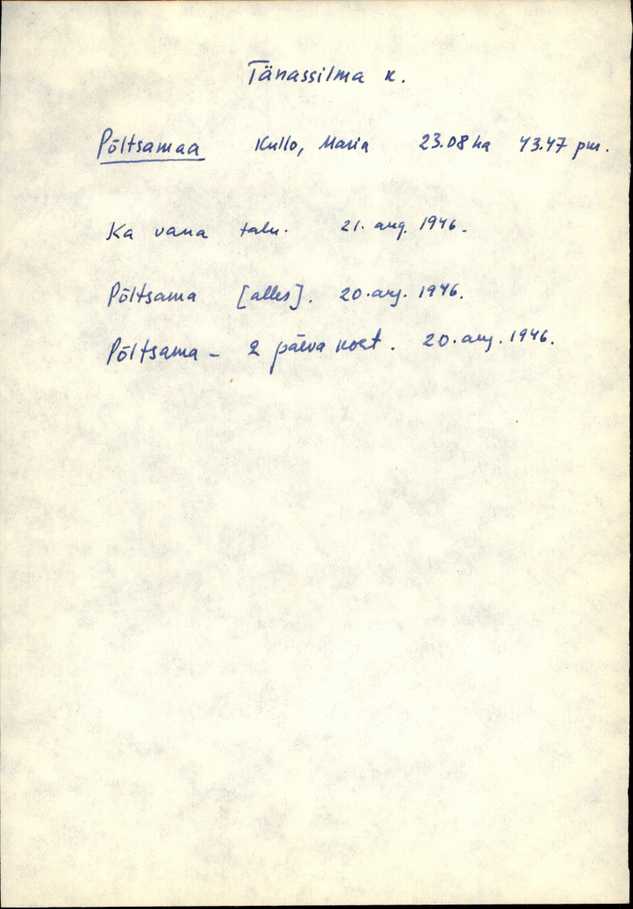 Tänassilma k.
Põltsamaa Kullo, Maria 23.08 ha 43.47 pm.
Ka vana talu. 21. aug. 1946.
Põltsama [alles]. 20. aug. 1946.
Põltsama - 2 päeva koet. 20. aug. 1946.